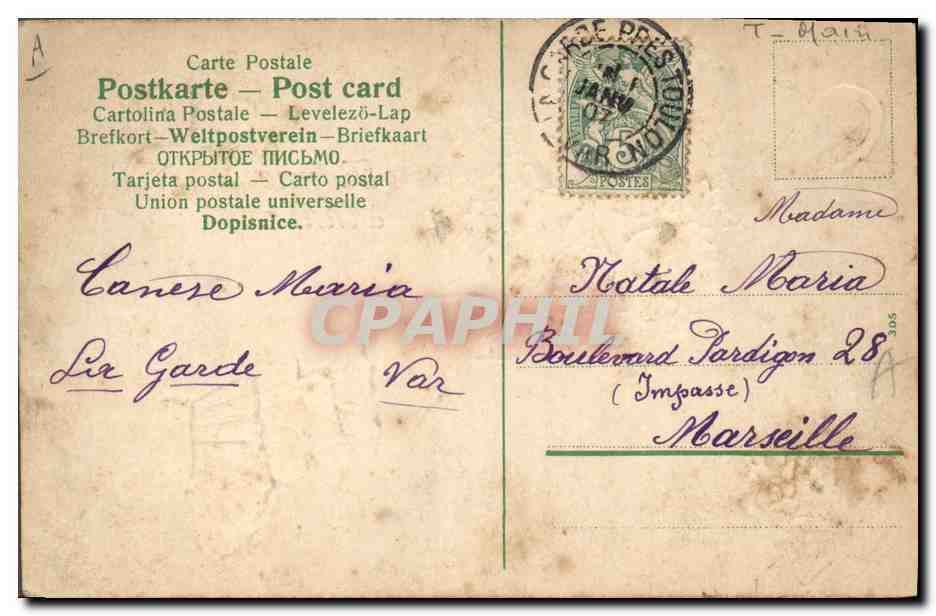 A
T - Main
Carte Postale
Postkarte — Post card
Cartolina Postale — Levelezö-Lap
Brefkort—Weltpostverein—Briefkaart
ОТКРЫТОЕ ПИСЬМО.
Tarjeta postal — Carto postal
Union postale universelle
Dopisnice.
LA GARDE PRES TOULON
VAR
1
JANV
07
5
POSTES
Madame
Canese Maria
Natale Maria
La Garde Var
Boulevard Pardigon 28
(Impasse)
Marseille
305
A
CPAPHIL